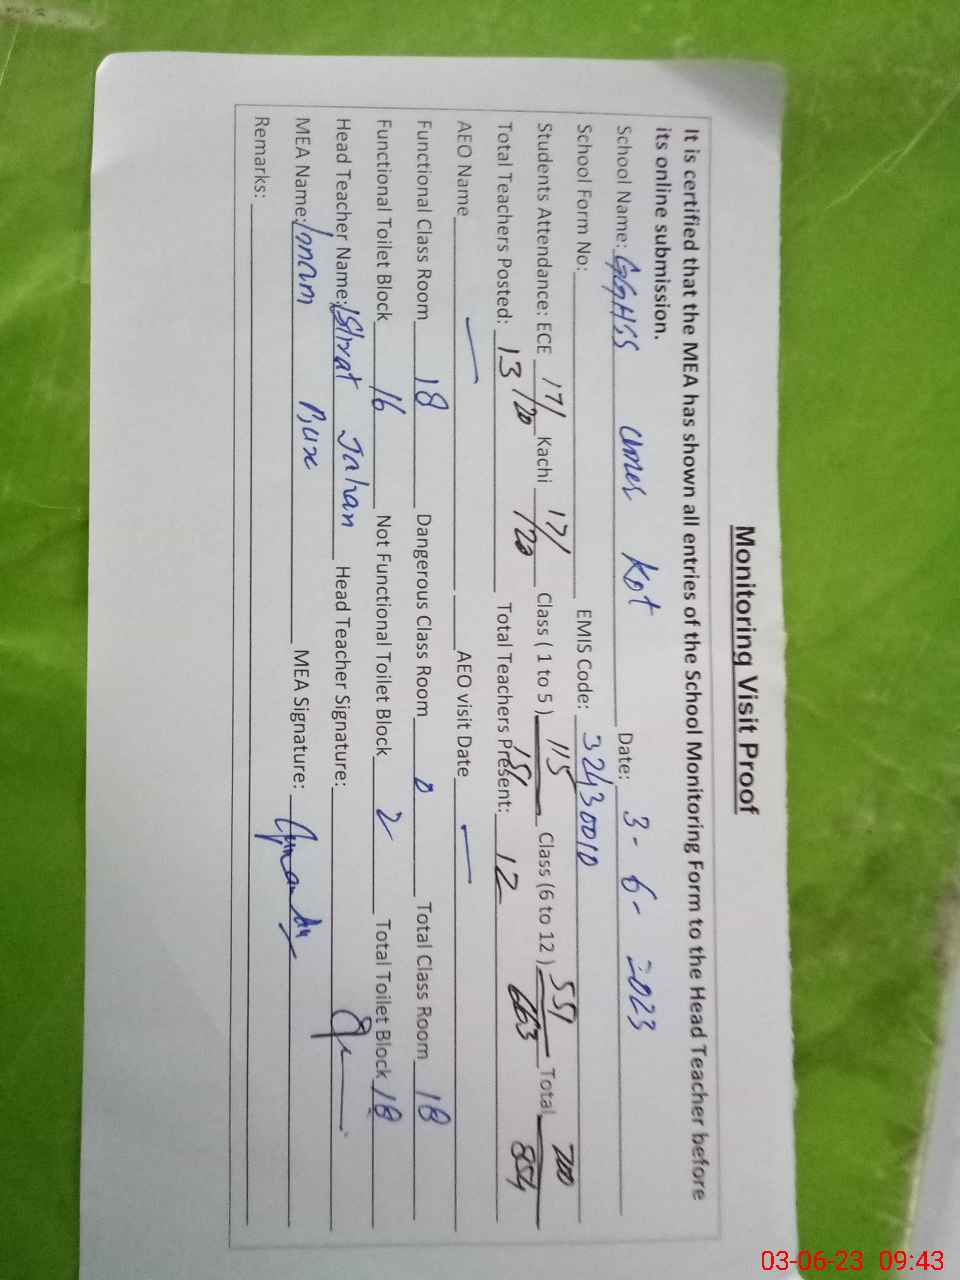 Monitoring Visit Proof
It is certified that the MEA has shown all entries of the School Monitoring Form to the Head Teacher before
its online submission.
School Name: GGHSS Umer Kot Date: 3-6-2023
School Form No: EMIS Code: 32430010
Students Attendance: ECE 17/20 Kachi 17/20 Class ( 1 to 5 ) 115/151 Class (6 to 12 ) 551/663 Total 700/854
Total Teachers Posted: 13 Total Teachers Present: 12
AEO Name — AEO visit Date —
Functional Class Room 18 Dangerous Class Room 0 Total Class Room 18
Functional Toilet Block 16 Not Functional Toilet Block 2 Total Toilet Block 18
Head Teacher Name: Ishrat Jahan Head Teacher Signature:
MEA Name: Imam Bux MEA Signature:
Remarks:
03-06-23 09:43